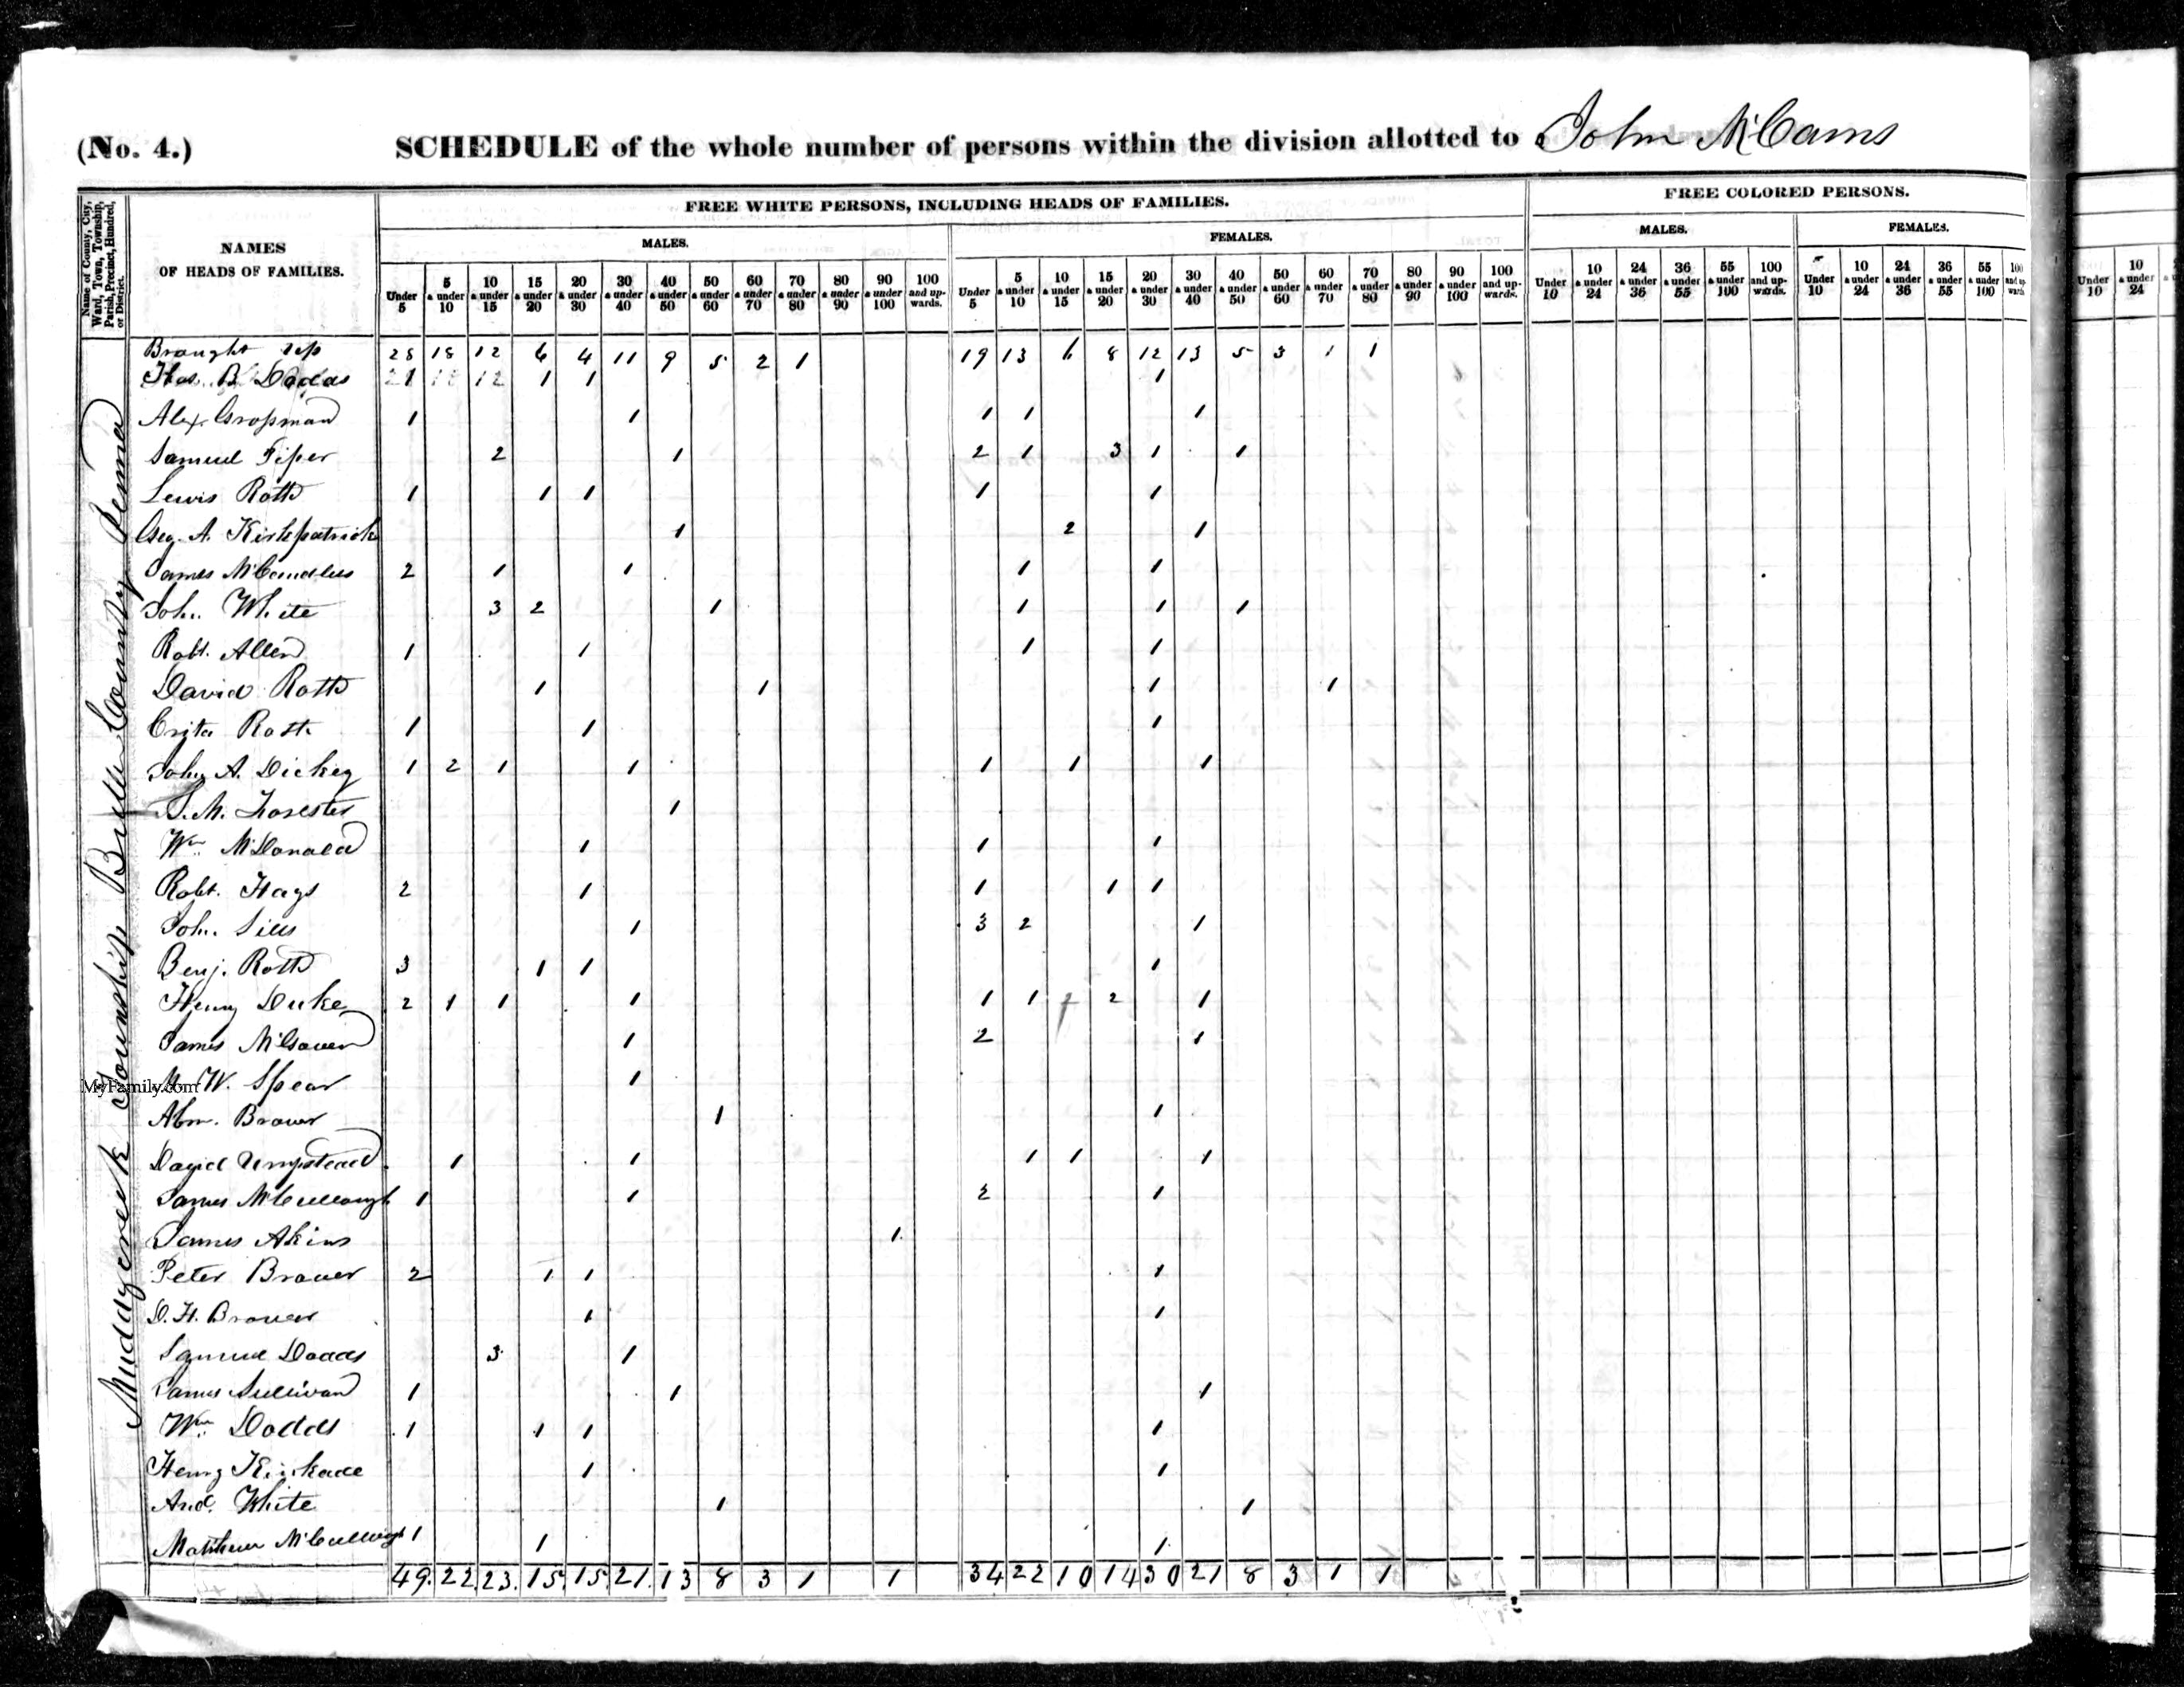 (No. 4.) SCHEDULE of the whole number of persons within the division allotted to John McCams
Name of County, City, Ward, Town, Township, Parish, Precinct, Hundred, or District.
NAMES OF HEADS OF FAMILIES.
FREE WHITE PERSONS, INCLUDING HEADS OF FAMILIES.
FREE COLORED PERSONS.
MALES. FEMALES. MALES. FEMALES.
Under 5 5 & under 10 10 & under 15 15 & under 20 20 & under 30 30 & under 40 40 & under 50 50 & under 60 60 & under 70 70 & under 80 80 & under 90 90 & under 100 100 and upwards.
Under 5 5 & under 10 10 & under 15 15 & under 20 20 & under 30 30 & under 40 40 & under 50 50 & under 60 60 & under 70 70 & under 80 80 & under 90 90 & under 100 100 and upwards.
Under 10 10 & under 24 24 & under 36 36 & under 55 55 & under 100 100 and upwards.
Under 10 10 & under 24 24 & under 36 36 & under 55 55 & under 100 100 and up wards
Under 10 10 & under 24
Muddycreek Township Butler County Penna
Brought up 28 18 12 6 4 11 9 5 2 1 19 13 6 8 12 13 5 3 1 1
Thos. B Dodds 1 1 1 1
Alex. Grossman 1 1 1 1 1
Samuel Piper 2 1 2 1 3 1 1
Lewis Roth 1 1 1 1 1
Geo. A. Kirkpatrick 1 2 1
James McCandless 2 1 1 1 1
John White 3 2 1 1 1 1
Robt. Allen 1 1 1 1
David Roth 1 1 1 1
Roth 1 1 1
John A. Dickey 1 2 1 1 1 1 1
S. M. Forester 1
Wm McDonald 1 1 1
Robt. Hays 2 1 1 1 1
John Sills 1 3 2 1
Benj. Roth 3 1 1 1
Henry Duke 2 1 1 1 1 1 1 2 1
James McGowen 1 2 1
W. Spear 1
Abm. Brower 1 1
David Umpstead 1 1 1 1 1
James McCullough 1 1 2 1
James Akins 1
Peter Brower 2 1 1 1
D. H. Brower 1 1
Samuel Dodds 3 1
James Sullivan 1 1 1
Wm Dodds 1 1 1 1
Henry Kinkade 1 1
And. White 1 1
Matthew McCullough 1 1 1
49 22 23 15 15 21 13 8 3 1 1 34 22 10 14 30 21 8 3 1 1
MyFamily.com